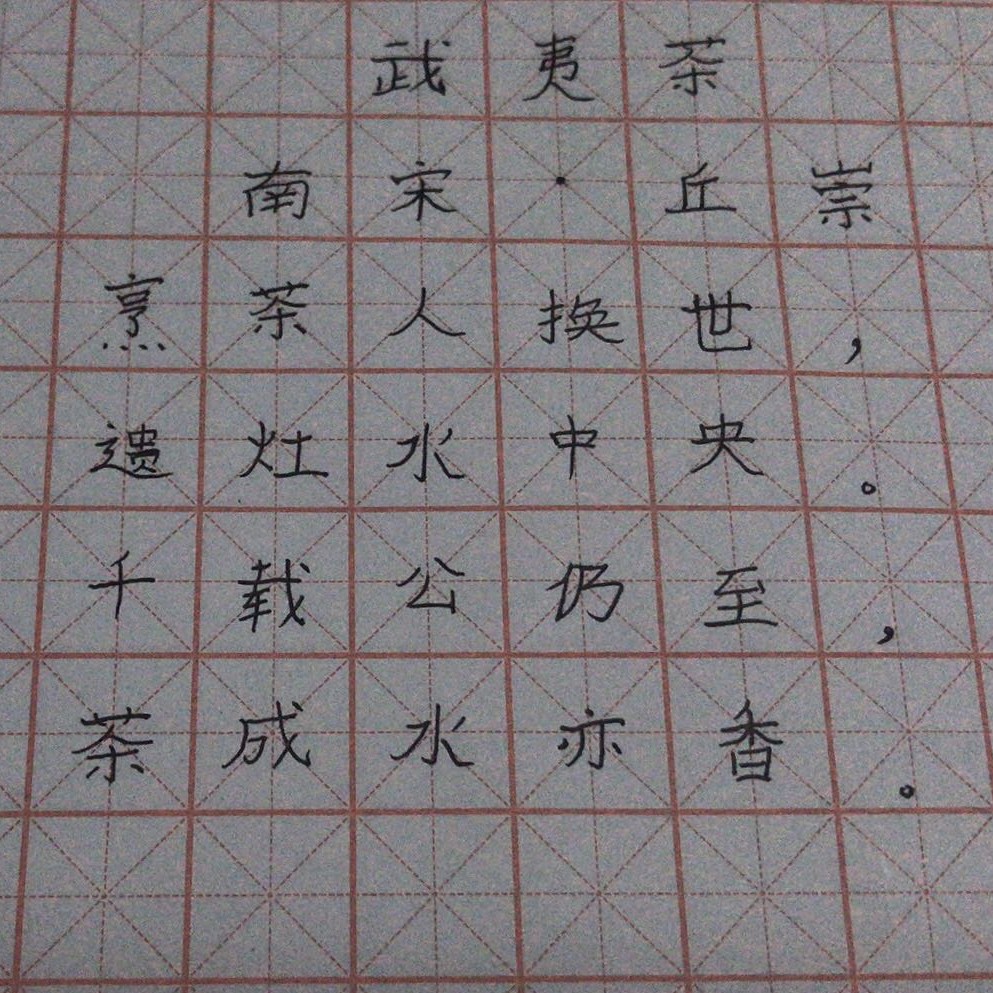 武夷茶
南宋·丘崇
烹茶人换世，
遗灶水中央。
千载公仍至，
茶成水亦香。